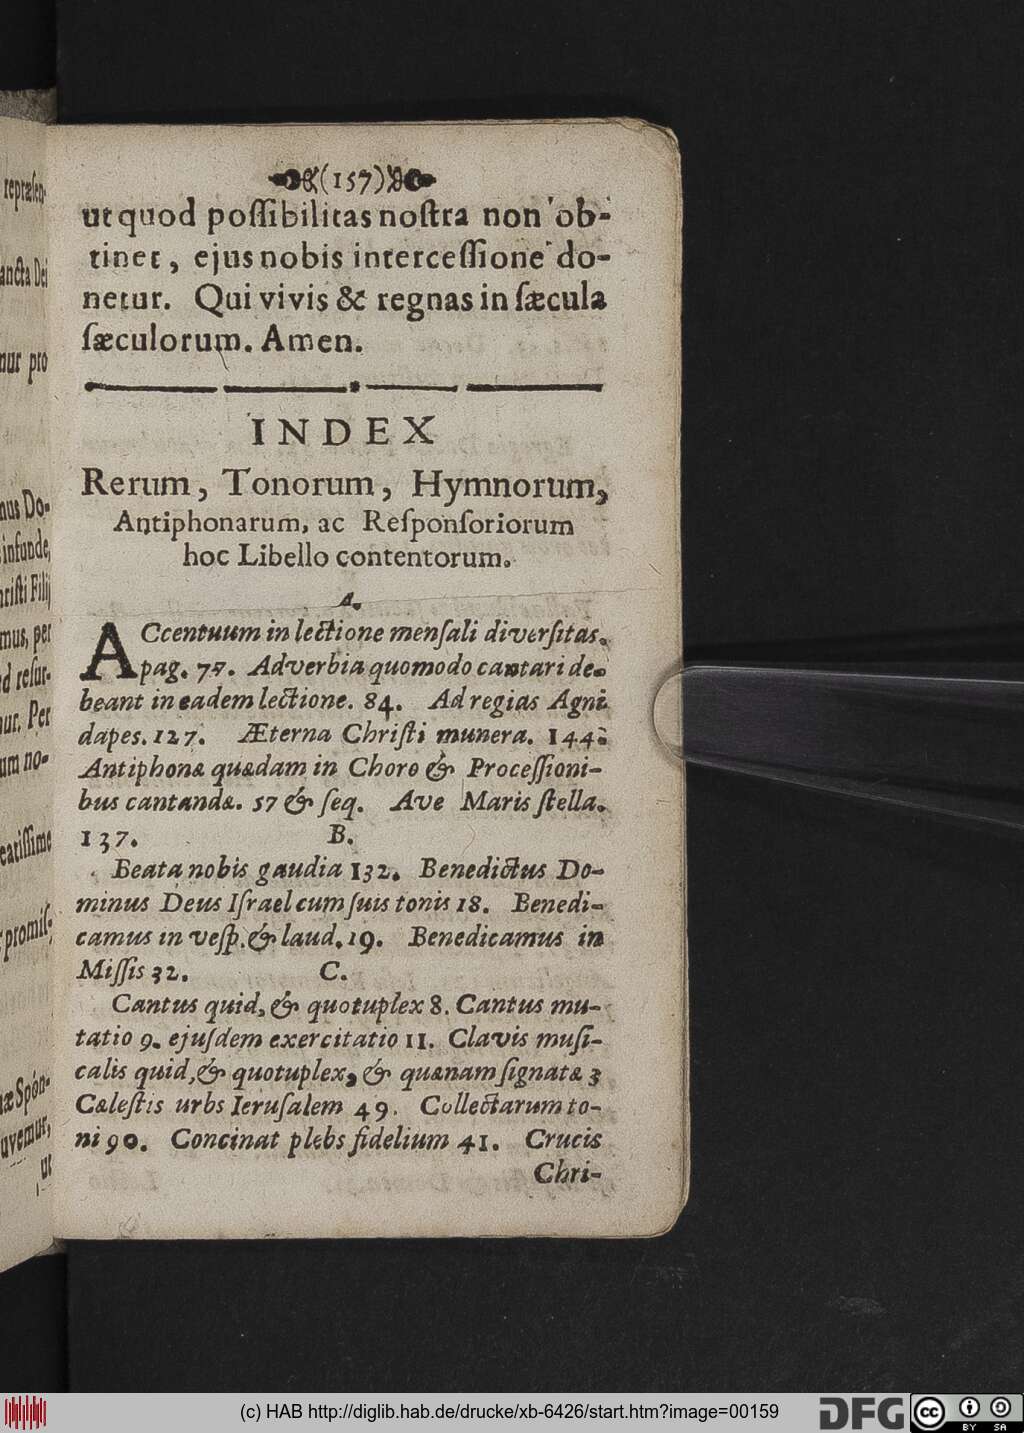 (157)
ut quod poſſibilitas noſtra non ob-
tinet, ejus nobis interceſſione do-
netur. Qui vivis & regnas in ſæcula
ſæculorum. Amen.
INDEX
Rerum, Tonorum, Hymnorum,
Antiphonarum, ac Reſponſoriorum
hoc Libello contentorum.
A.
ACcentuum in lectione menſali diverſitas.
pag. 77. Adverbia quomodo cantari de-
beant in eadem lectione. 84. Ad regias Agni
dapes. 127. Æterna Chriſti munera. 144.
Antiphonæ quædam in Choro & Proceſſioni-
bus cantandæ. 57 & ſeq. Ave Maris ſtella.
137. B.
Beata nobis gaudia 132. Benedictus Do-
minus Deus Iſrael cum ſuis tonis 18. Benedi-
camus in veſp. & laud. 19. Benedicamus in
Miſſis 32. C.
Cantus quid, & quotuplex 8. Cantus mu-
tatio 9. ejuſdem exercitatio 11. Clavis muſi-
calis quid, & quotuplex, & quænam ſignatæ 3
Cæleſtis urbs Ieruſalem 49. Collectarum to-
ni 90. Concinat plebs fidelium 41. Crucis
Chri-
repræſen-
ancta Dei
mur pro
nus Do-
infunde,
hriſti Filij
mus, per
ad reſur-
nur. Per
um no-
eatiſſime
promiſ-
næ Spon-
uvemur,
ut
(c) HAB http://diglib.hab.de/drucke/xb-6426/start.htm?image=00159
DFG
cc
BY SA